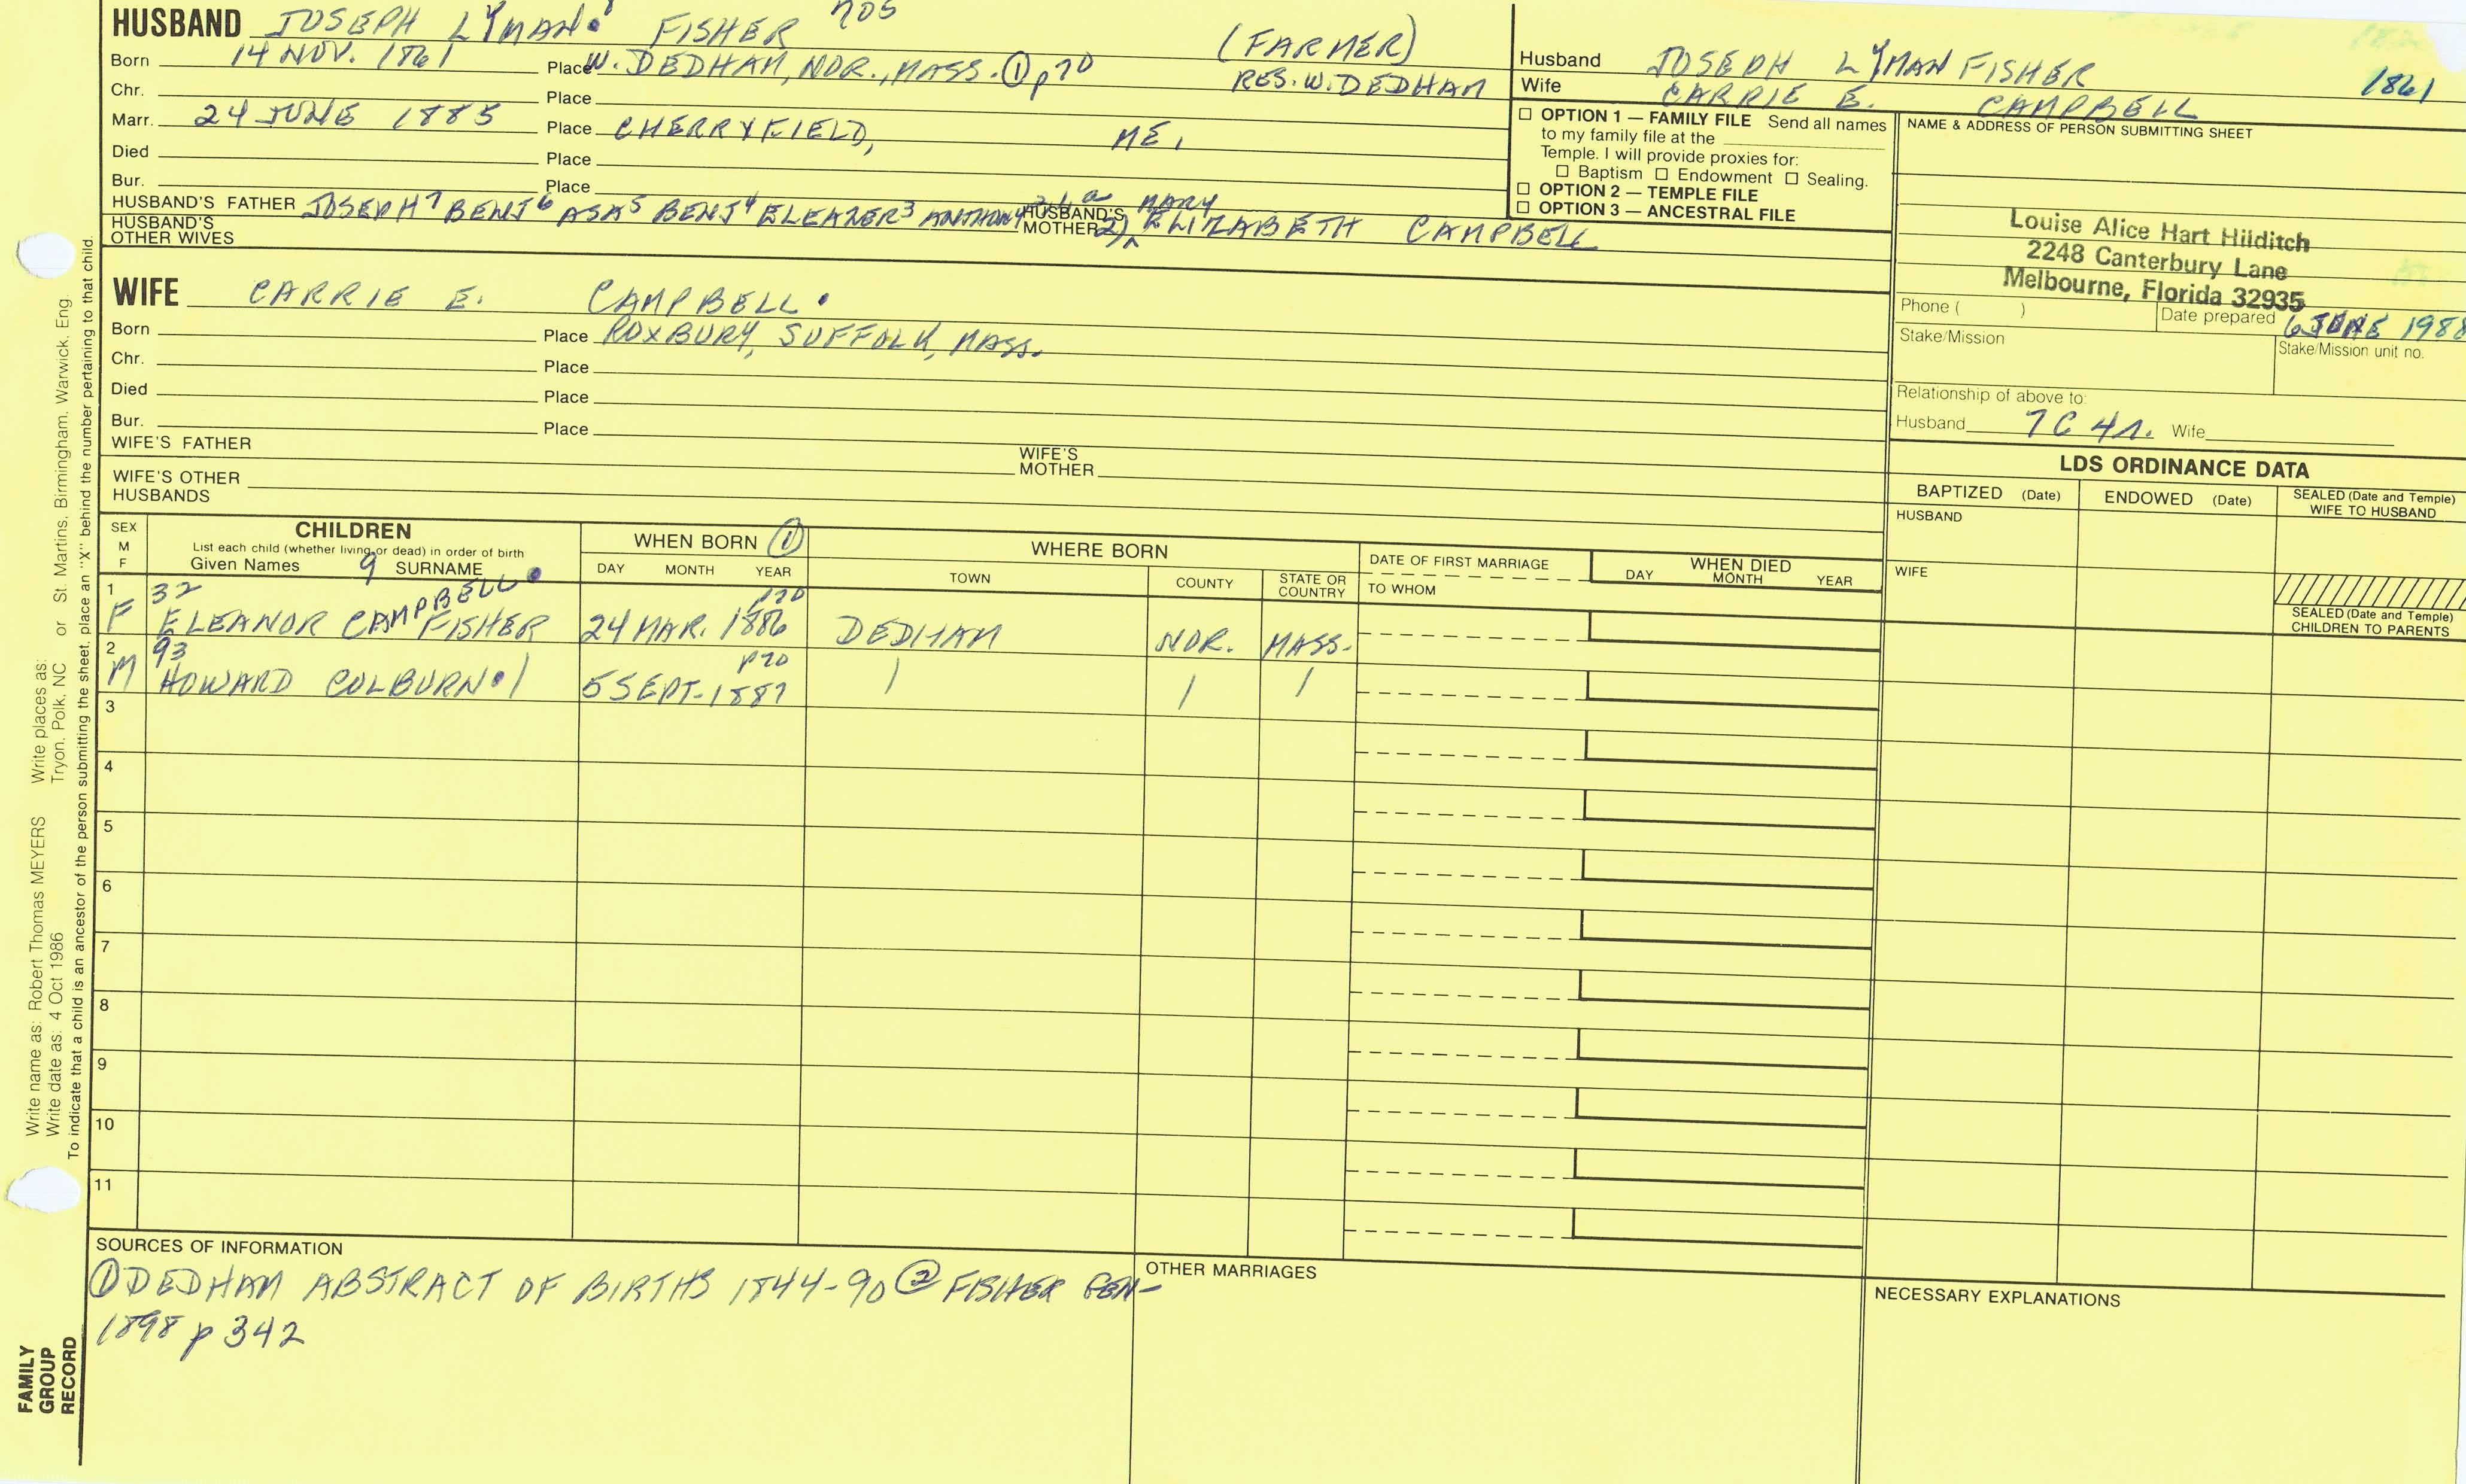 HUSBAND JOSEPH LYMAN FISHER 705
(FARMER)
Born 14 NOV. 1861 Place W. DEDHAM, NOR., MASS. ① p70 RES. W. DEDHAM
Chr. Place
Marr. 24 JUNE 1885 Place CHERRYFIELD, ME,
Died Place
Bur. Place
HUSBAND'S FATHER JOSEPH7 BENJ6 ASA5 BENJ4 ELEAZER3 ANTHONY HUSBAND'S MOTHER 2) MARY ELIZABETH CAMPBELL
HUSBAND'S OTHER WIVES
Husband JOSEPH LYMAN FISHER 1861
Wife CARRIE E. CAMPBELL
☐ OPTION 1 — FAMILY FILE Send all names
to my family file at the
Temple. I will provide proxies for:
☐ Baptism ☐ Endowment ☐ Sealing.
☐ OPTION 2 — TEMPLE FILE
☐ OPTION 3 — ANCESTRAL FILE
NAME & ADDRESS OF PERSON SUBMITTING SHEET
Louise Alice Hart Hilditch
2248 Canterbury Lane
Melbourne, Florida 32935
Phone ( ) Date prepared 6 JUNE 1988
Stake/Mission Stake/Mission unit no.
Relationship of above to:
Husband 7C 4R. Wife
WIFE CARRIE E. CAMPBELL
Born Place ROXBURY, SUFFOLK, MASS.
Chr. Place
Died Place
Bur. Place
WIFE'S FATHER WIFE'S MOTHER
WIFE'S OTHER HUSBANDS
LDS ORDINANCE DATA
BAPTIZED (Date) ENDOWED (Date) SEALED (Date and Temple) WIFE TO HUSBAND
HUSBAND
WIFE
SEALED (Date and Temple)
CHILDREN TO PARENTS
SEX M F
CHILDREN
List each child (whether living or dead) in order of birth
Given Names 9 SURNAME
WHEN BORN ①
DAY MONTH YEAR
WHERE BORN
TOWN COUNTY STATE OR COUNTRY
DATE OF FIRST MARRIAGE
TO WHOM
WHEN DIED
DAY MONTH YEAR
1 32 CAMPBELL p20
F ELEANOR CAMPBELL FISHER 24 MAR. 1886 DEDHAM NOR. MASS.
2 93 p70
M HOWARD COLBURN 5 SEPT. 1887
3
4
5
6
7
8
9
10
11
SOURCES OF INFORMATION
① DEDHAM ABSTRACT OF BIRTHS 1844-90 ② FISHER GEN-
1898 p 342
OTHER MARRIAGES
NECESSARY EXPLANATIONS
Write name as: Robert Thomas MEYERS Write places as: St. Martins, Birmingham, Warwick, Eng.
Write date as: 4 Oct 1986 Tryon, Polk, NC or
To indicate that a child is an ancestor of the person submitting the sheet, place an "X" behind the number pertaining to that child.
FAMILY
GROUP
RECORD